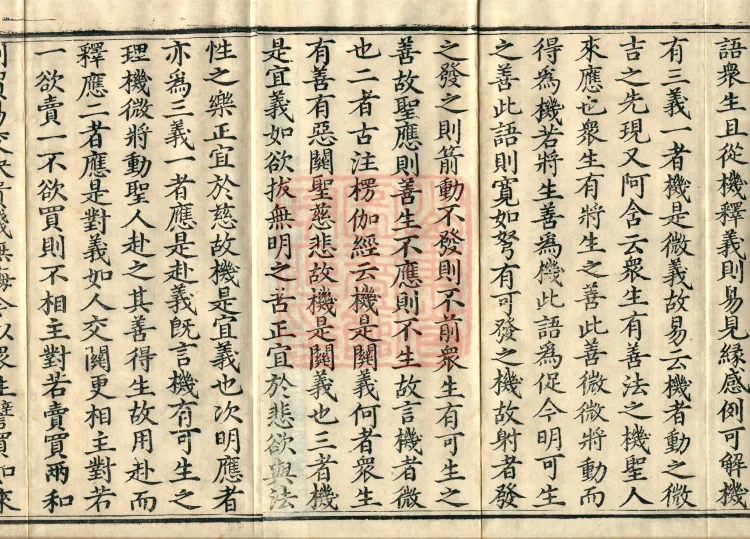 語衆生且從機釋義則易見緣感例可解機
有三義一者機是微義故易云機者動之微
吉之先現又阿含云衆生有善法之機聖人
來應也衆生有將生之善此善微微將動而
得為機若將生善為機此語為促今明可生
之善此語則寬如弩有可發之機故射者發
之發之則箭動不發則不前衆生有可生之
善故聖應則善生不應則不生故言機者微
也二者古注楞伽經云機是關義何者衆生
有善有惡關聖慈悲故機是關義也三者機
是宜義如欲拔無明之苦正宜於悲欲與法
性之樂正宜於慈故機是宜義也次明應者
亦為三義一者應是赴義既言機有可生之
理機微將動聖人赴之其善得生故用赴而
釋應二者應是對義如人交關更相主對若
一欲賣一不欲買則不相主對若賣買兩和